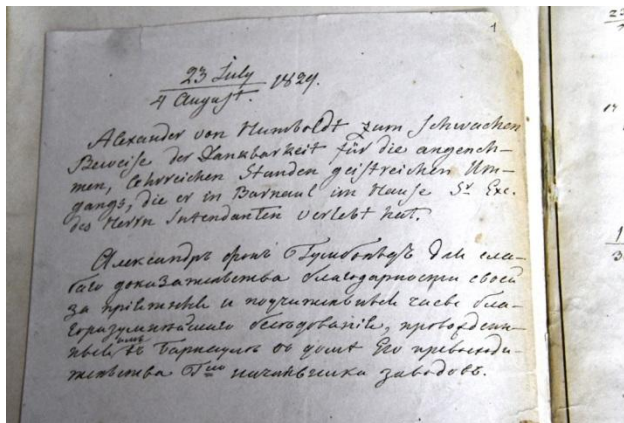 1
23 July
4 August. 1829.
Alexander von Humboldt zum schwachen
Beweise der Dankbarkeit für die angeneh-
men, lehrreichen Stunden geistreichen Um-
gangs, die er in Barnaul im Hause Sr Exc.
des Herrn Intendanten verlebt hat.
Александръ фонъ Гумбольдтъ для сла-
баго доказательства благодарности своей
за пріятные и поучительные часы бла-
горазумнѣйшаго бесѣдованія, проведен-
ные имъ въ Барнаулѣ въ домѣ Его превосходи-
тельства Гна начальника заводовъ.